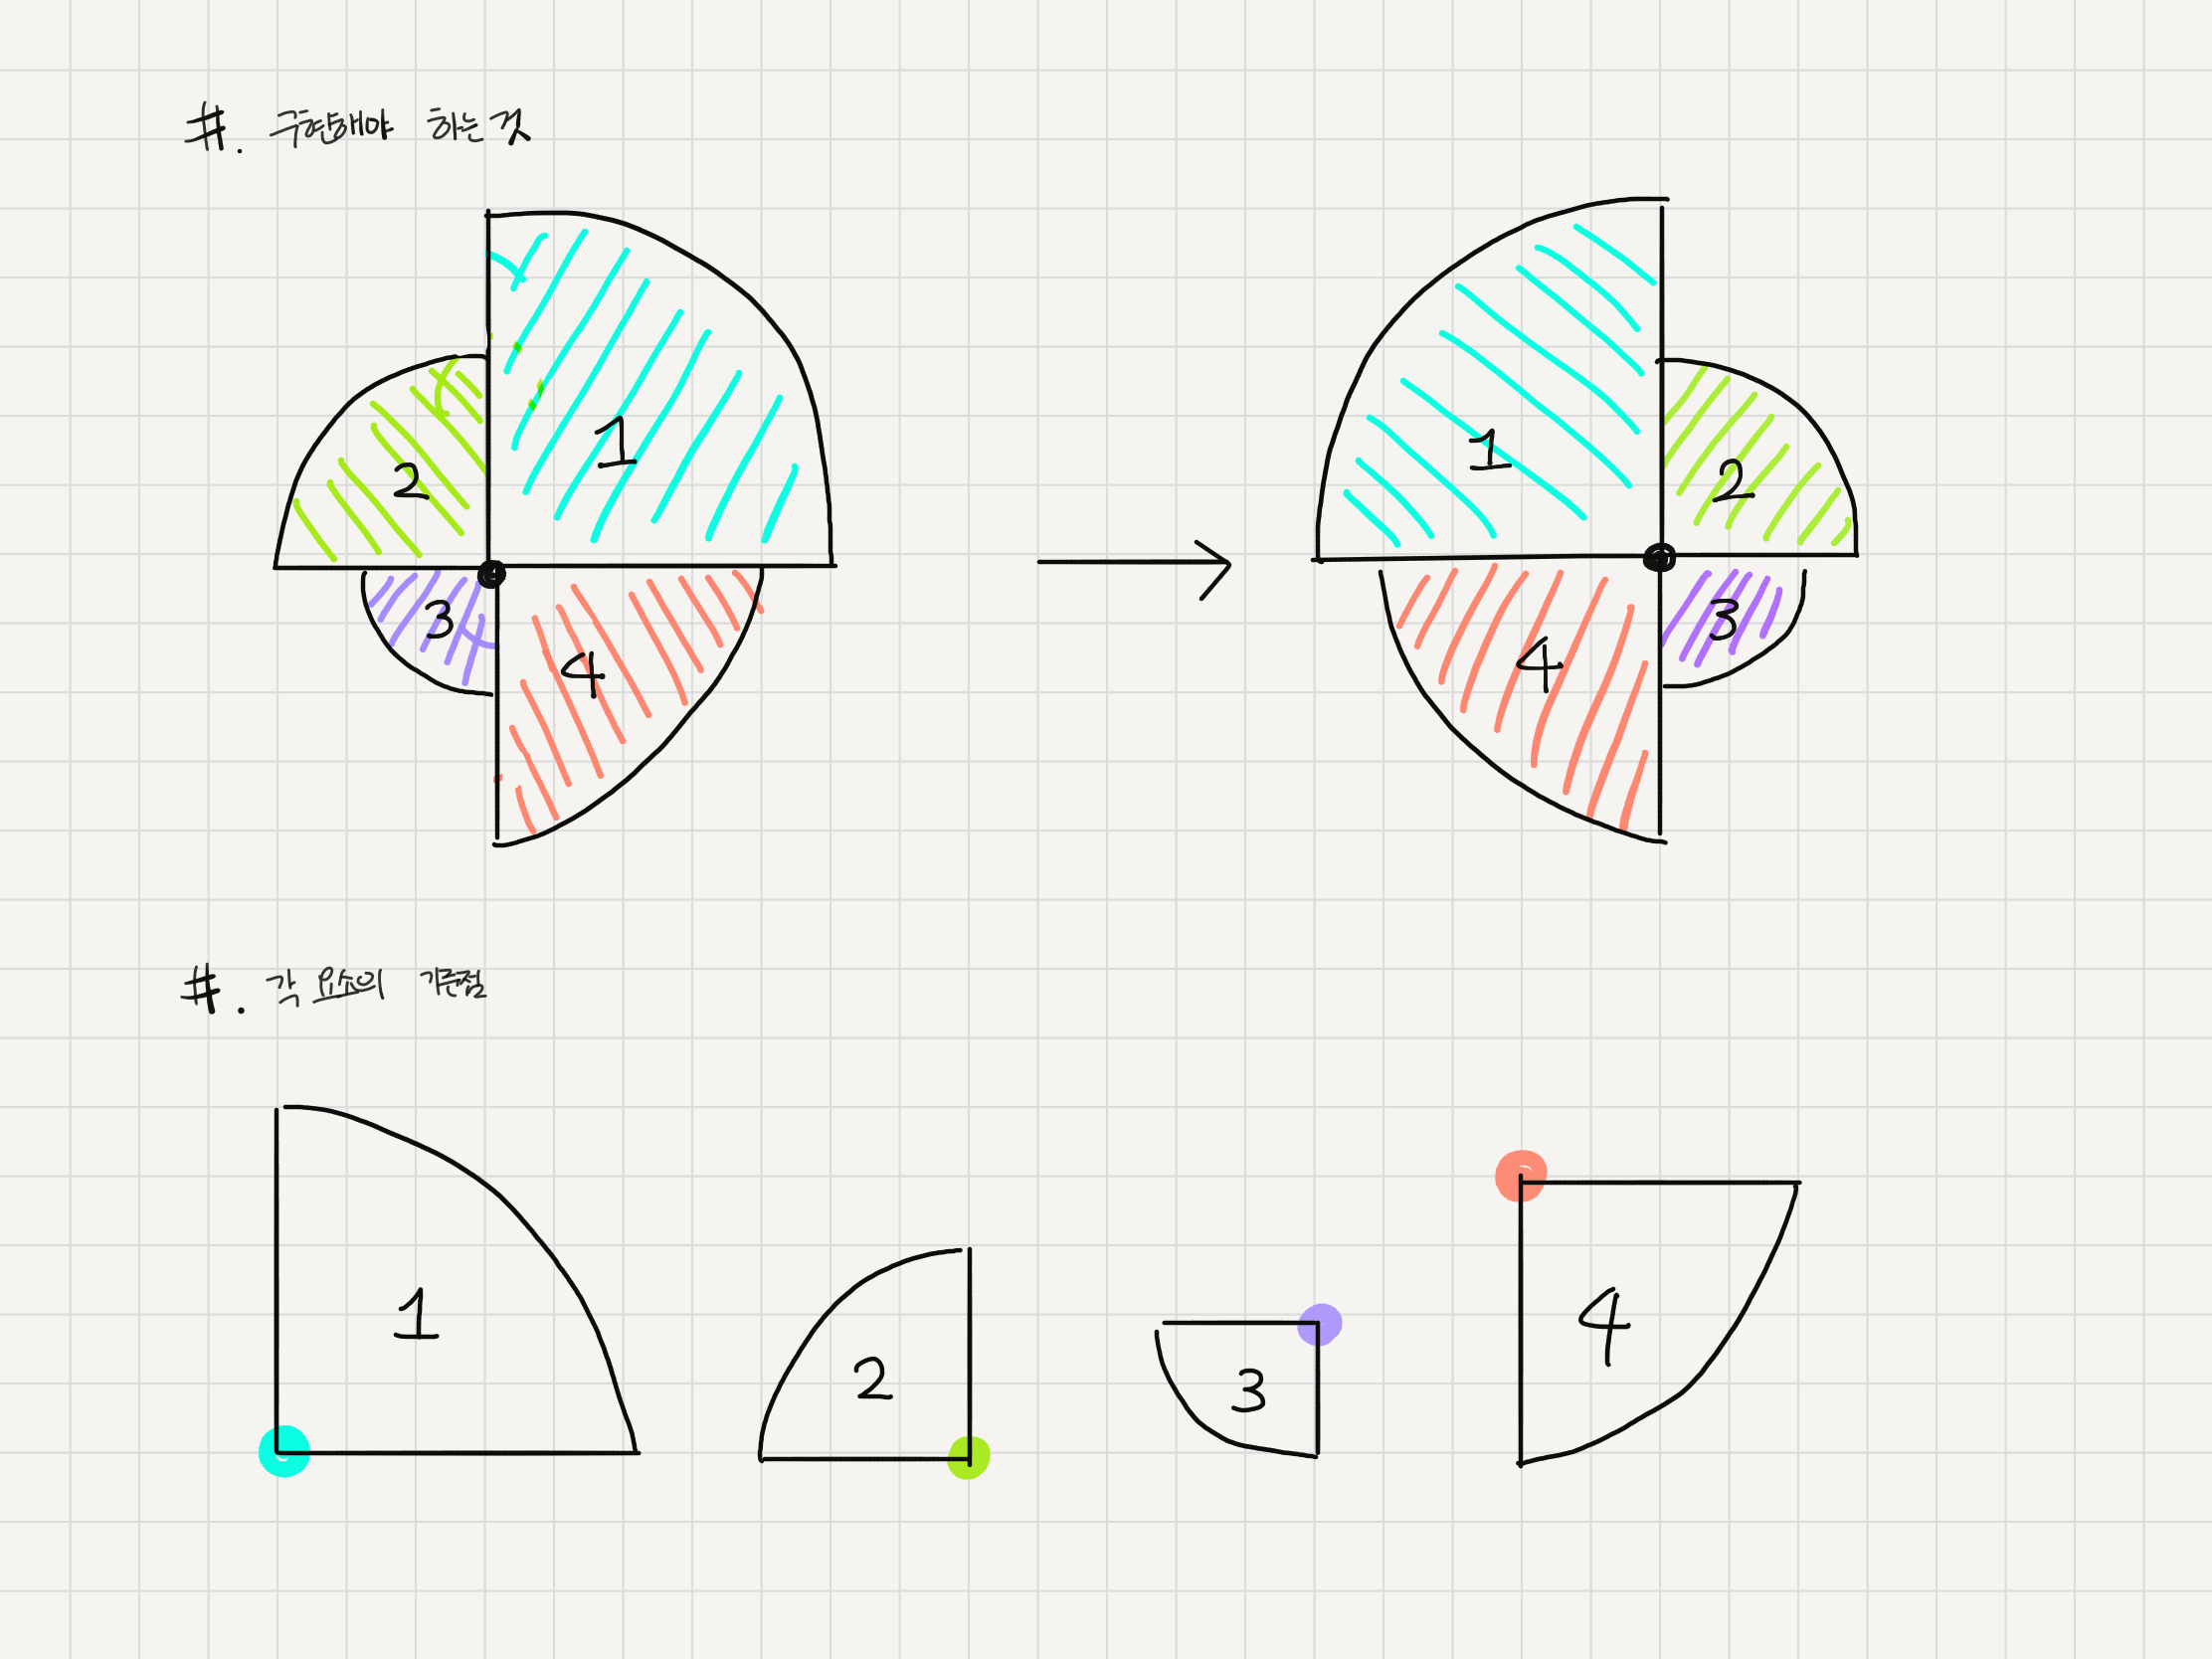 #. 구현해야 하는 것
2 1
3 4
1 2
4 3
#. 각 요소의 기준점
1 2 3 4